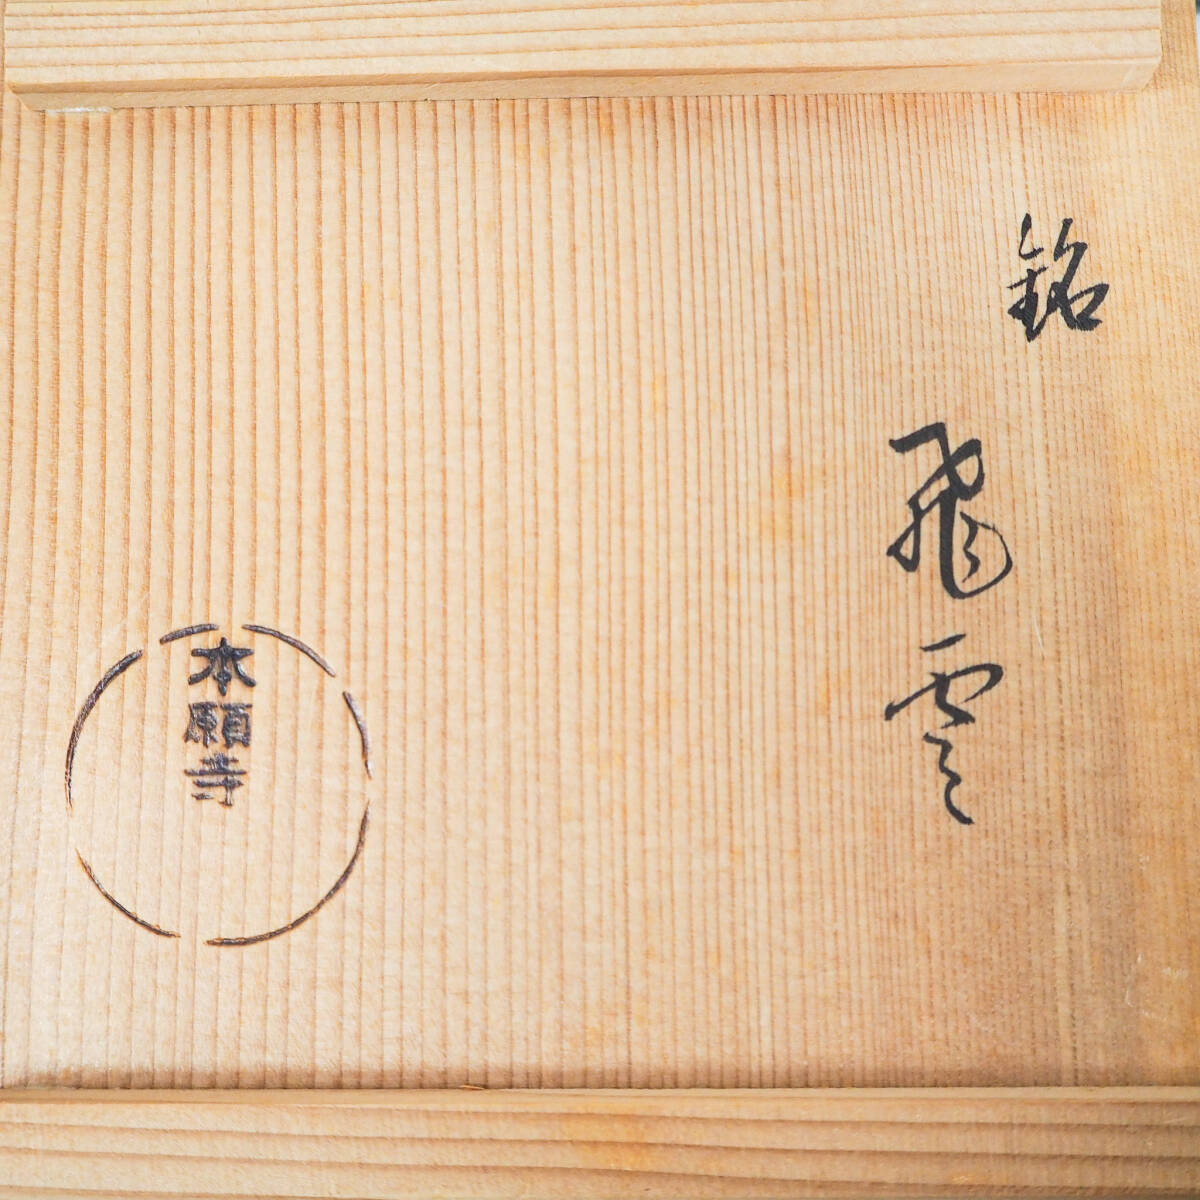 銘
飛雲
本願寺